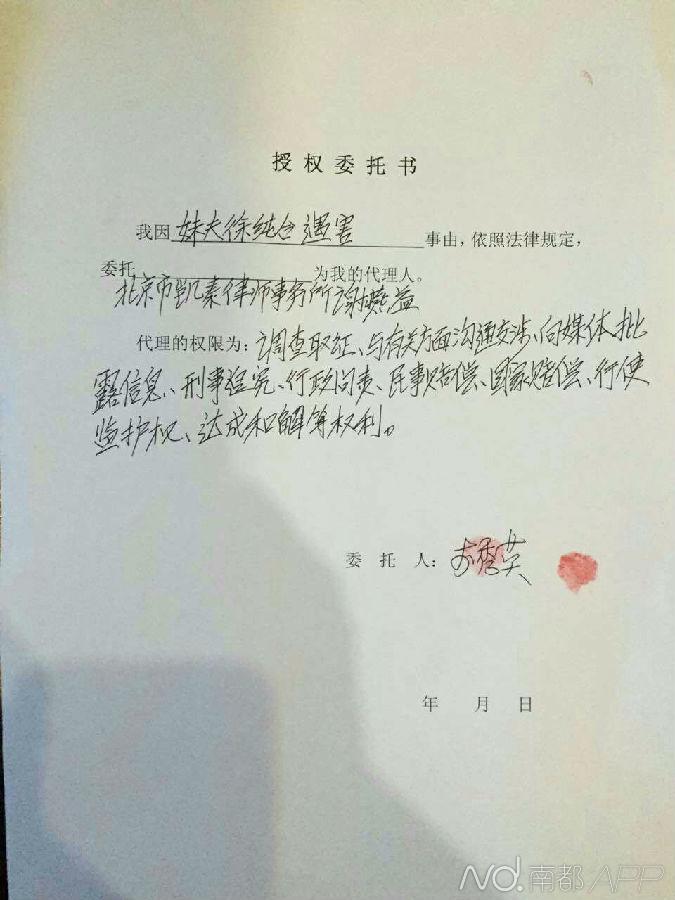 授权委托书
我因 妹夫徐纯合遇害 事由，依照法律规定，
委托 为我的代理人。
北京市凯泰律师事务所谢燕益
代理的权限为：调查取证、与有关方面沟通交涉、向媒体批
露信息、刑事追究、行政问责、民事赔偿、国家赔偿、行使
监护权、达成和解等权利。
委 托 人： 秀英
年 月 日
ND.南都APP